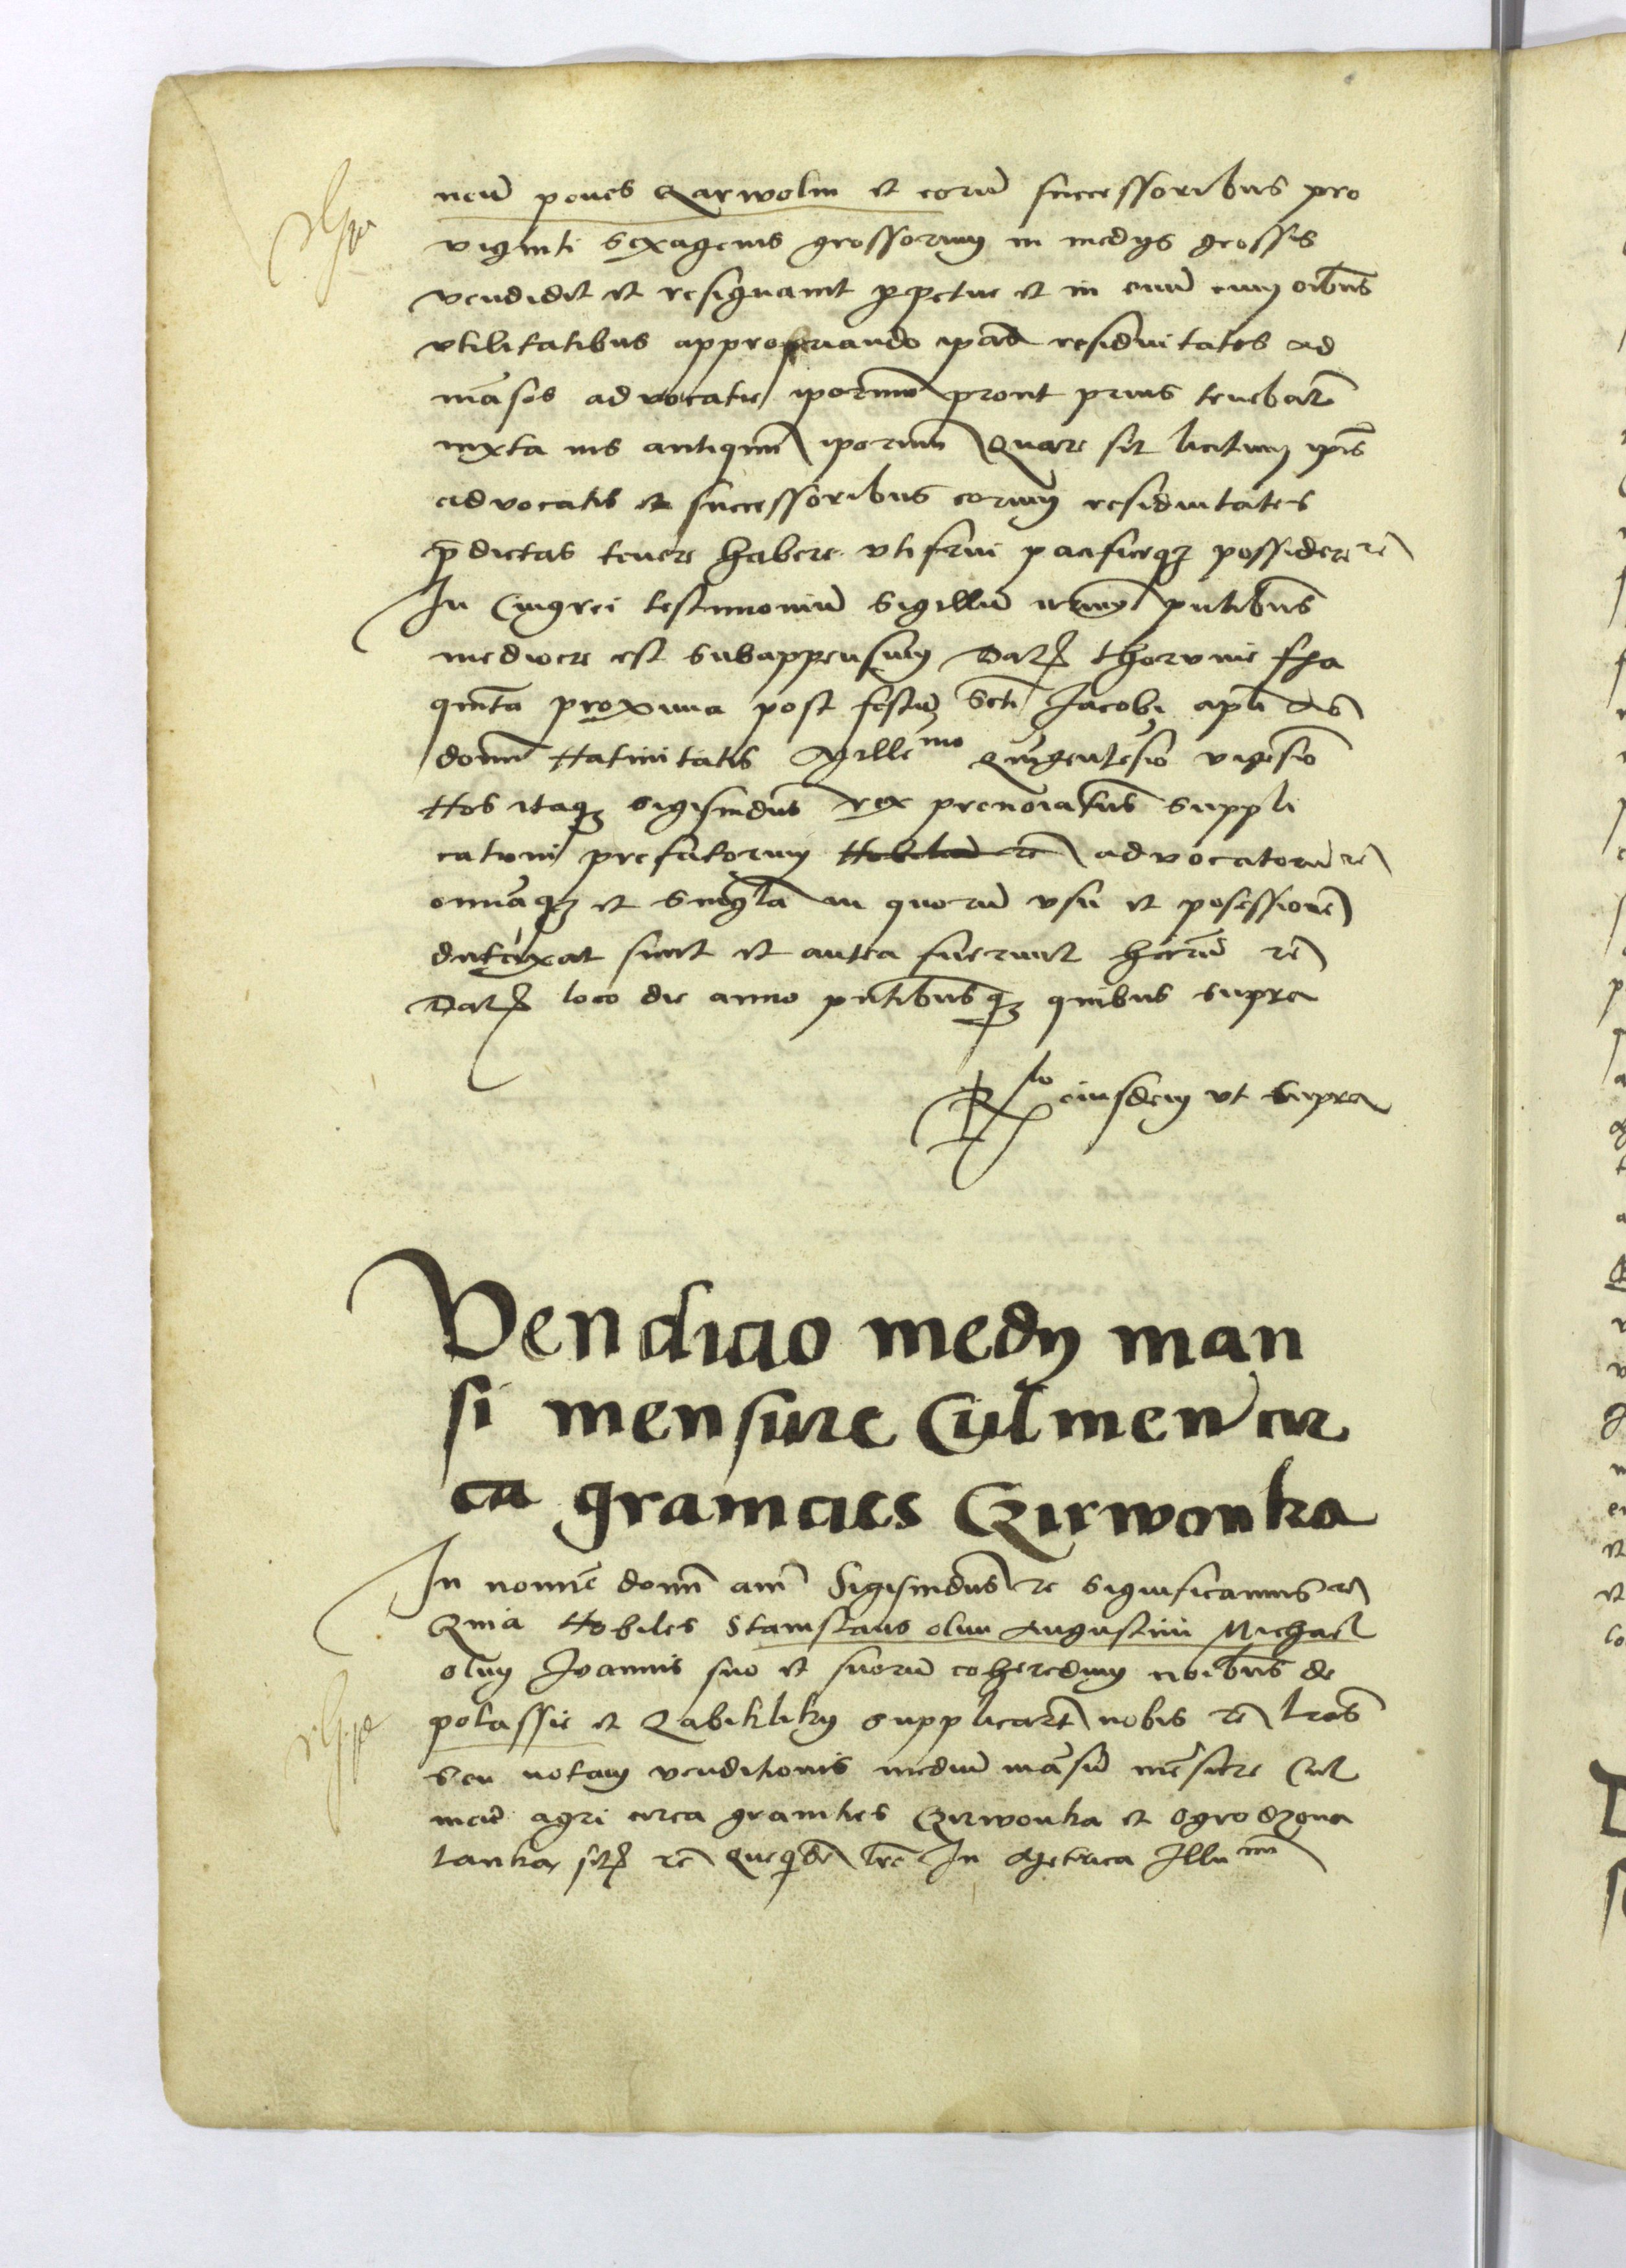 neu͂ penes Karwolm et eoru͂ successoribus pro
viginti sexagenis grossorum in medys grossis
vendidit et resignauit ꝑpetue et in euu͂ cum oi͂bus
vtilitatibus appropriando ip͂as residuitates ad
ma͂sos aduocatie ip͂orum prout prius teneba͂t
iuxta ius antiquu͂ ip͂orum Quare sit licitum ip͂is
aduocatis et successoribus eorum residuitates
p͂dictas tenere habere vtifrui pacificeqꝫ possidere rc͂
In Cuius rei testimoniu͂ sigillu͂ nr͂um pn͂tibus
mediocre est subappensum Dat͂ thorunie fr͂ia
quinta proxima post festu͂ Sc͂ti Jacobi apl͂i An͂
domi͂ Natiuitatis Mille͂mo Quige͂tesi͂o vigesi͂o
Nos itaqꝫ sigismu͂dus rex prenoi͂atus suppli
cationi prefatorum aduocatoru͂ rc͂
omniaqꝫ et singula in quoru͂ vsu et posessione͂
du͂taxat sunt et antea fuerunt haru͂ rc͂
Dat͂ loco die anno pn͂tibusqꝫ quibus supra
R͂lo eiusdem vt supra
Vendicio medy man
si mensure Culmen cir
ca gramcies Czirwonka
In nomi͂e domi͂ am͂ Sigismu͂dus rc͂ significamus rc͂
Quia Nobiles Stanislaus olim Augustini Michael
olim Joannis suo et suoru͂ coheredum noi͂bus de
polassie et Zabikliky supplicaru͂t nobis rc͂ lr͂as
seu notam venditionis mediu͂ ma͂su͂ me͂sure Cul
men͂ agri circa granities Czirwonka et Ogrodzona
lanka sit͂ rc͂ Queqde͂ lr͂e In Metrica Illumi͂